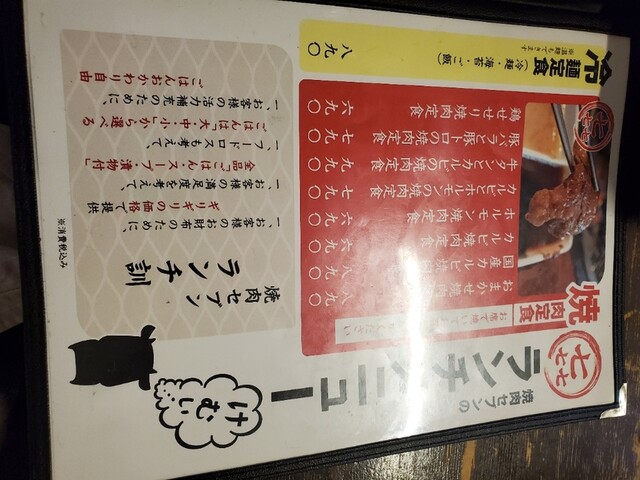 焼肉セブンの
ランチメニュー
七七七
焼肉定食
おまかせ焼肉定食 八九〇
国産カルビ焼肉定食 八九〇
カルビ焼肉定食 六九〇
ホルモン焼肉定食 六九〇
カルビとホルモンの焼肉定食 七九〇
牛タンとカルビの焼肉定食 九九〇
豚バラとトロの焼肉定食 七九〇
鶏せせり焼肉定食 六九〇
冷麺定食(冷麺・海苔・ご飯) 八九〇
※温麺もできます
けむい
焼肉セブン
ランチ訓
一、お客様のお財布のために、
ギリギリの価格で提供
一、お客様の満足度を考えて、
全品「ごはん・スープ・漬物付」
一、フードロスも考えて、
ごはん「大・中・小」から選べる
一、お客様の活力補充のために、
ごはんおかわり自由
※消費税込み